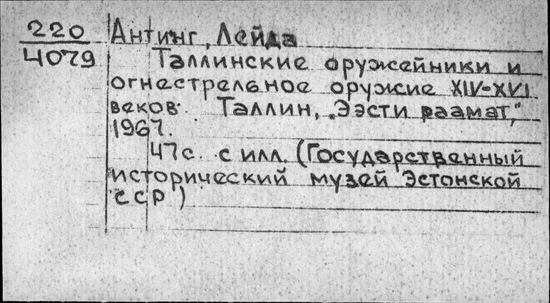 220 Антинг, Лейда
4079 Таллинские оружейники и
огнестрельное оружие XIV-XVI
веков. Таллин, „Ээсти раамат,"
1967.
47с. с илл. (Государственный
исторический музей Эстонской
ССР)